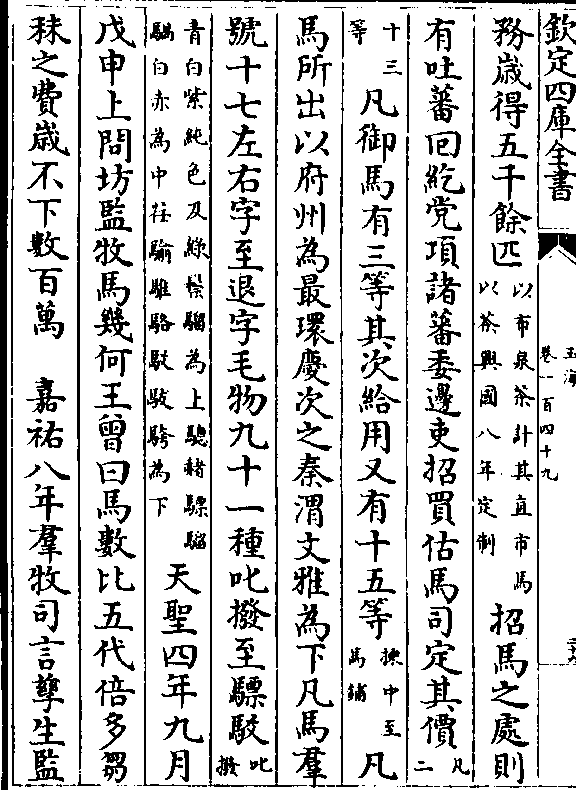 欽定四庫全書
玉海
卷一百四十九
務歲得五千餘匹以布泉茶計其直市馬以茶興國八年定制招馬之處則
有吐蕃回紇党項諸蕃委邊吏招買估馬司定其價凡二
十三等凡御馬有三等其次給用又有十五等揀中至馬鋪凡
馬所出以府州為最環慶次之秦渭文雅為下凡馬羣
號十七左右字至退字毛物九十一種叱撥至驃駁叱撥
青白紫純色及綠鬃騮為上驄赭驃騮騧白赤為中荏騟騅駱駁䭴騂為下天聖四年九月
戊申上問坊監牧馬幾何王曾曰馬數比五代倍多芻
秣之費歲不下數百萬 嘉祐八年羣牧司言孳生監